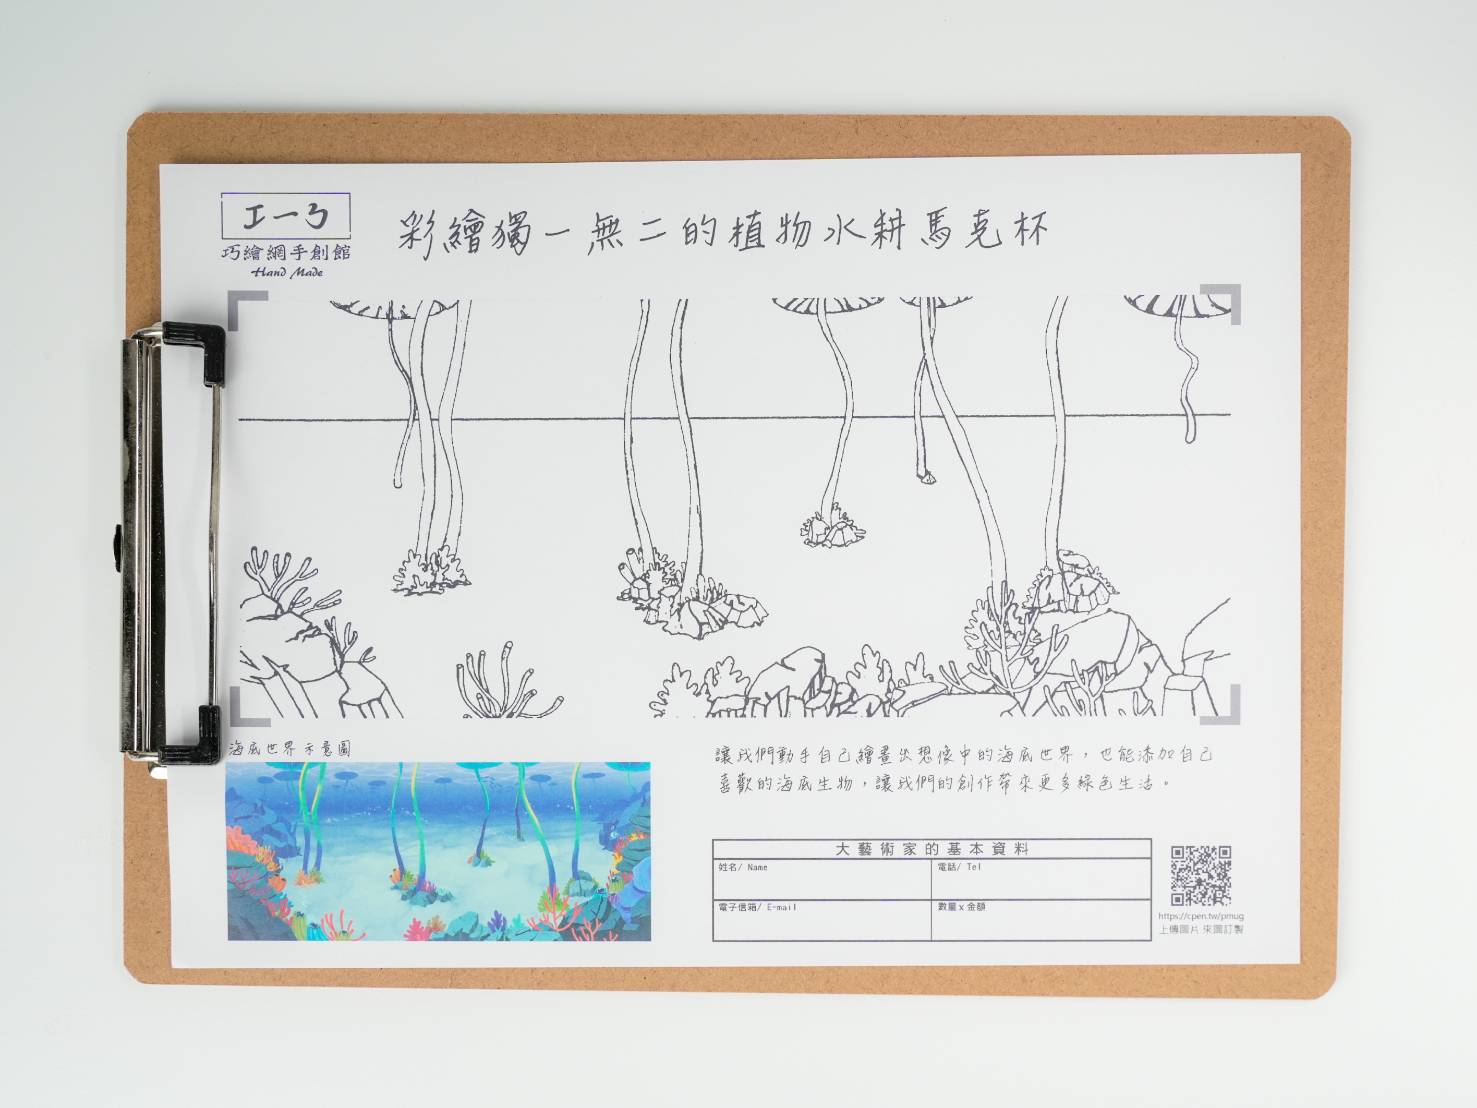 工一ㄋ
巧繪網手創館
Hand Made
彩繪獨一無二的植物水耕馬克杯
海底世界示意圖
讓我們動手自己繪畫出想像中的海底世界，也能添加自己
喜歡的海底生物，讓我們的創作帶來更多綠色生活。
大藝術家的基本資料
姓名/ Name
電話/ Tel
電子信箱/ E-mail
數量x金額
https://cpen.tw/pmug
上傳圖片 來圖訂製